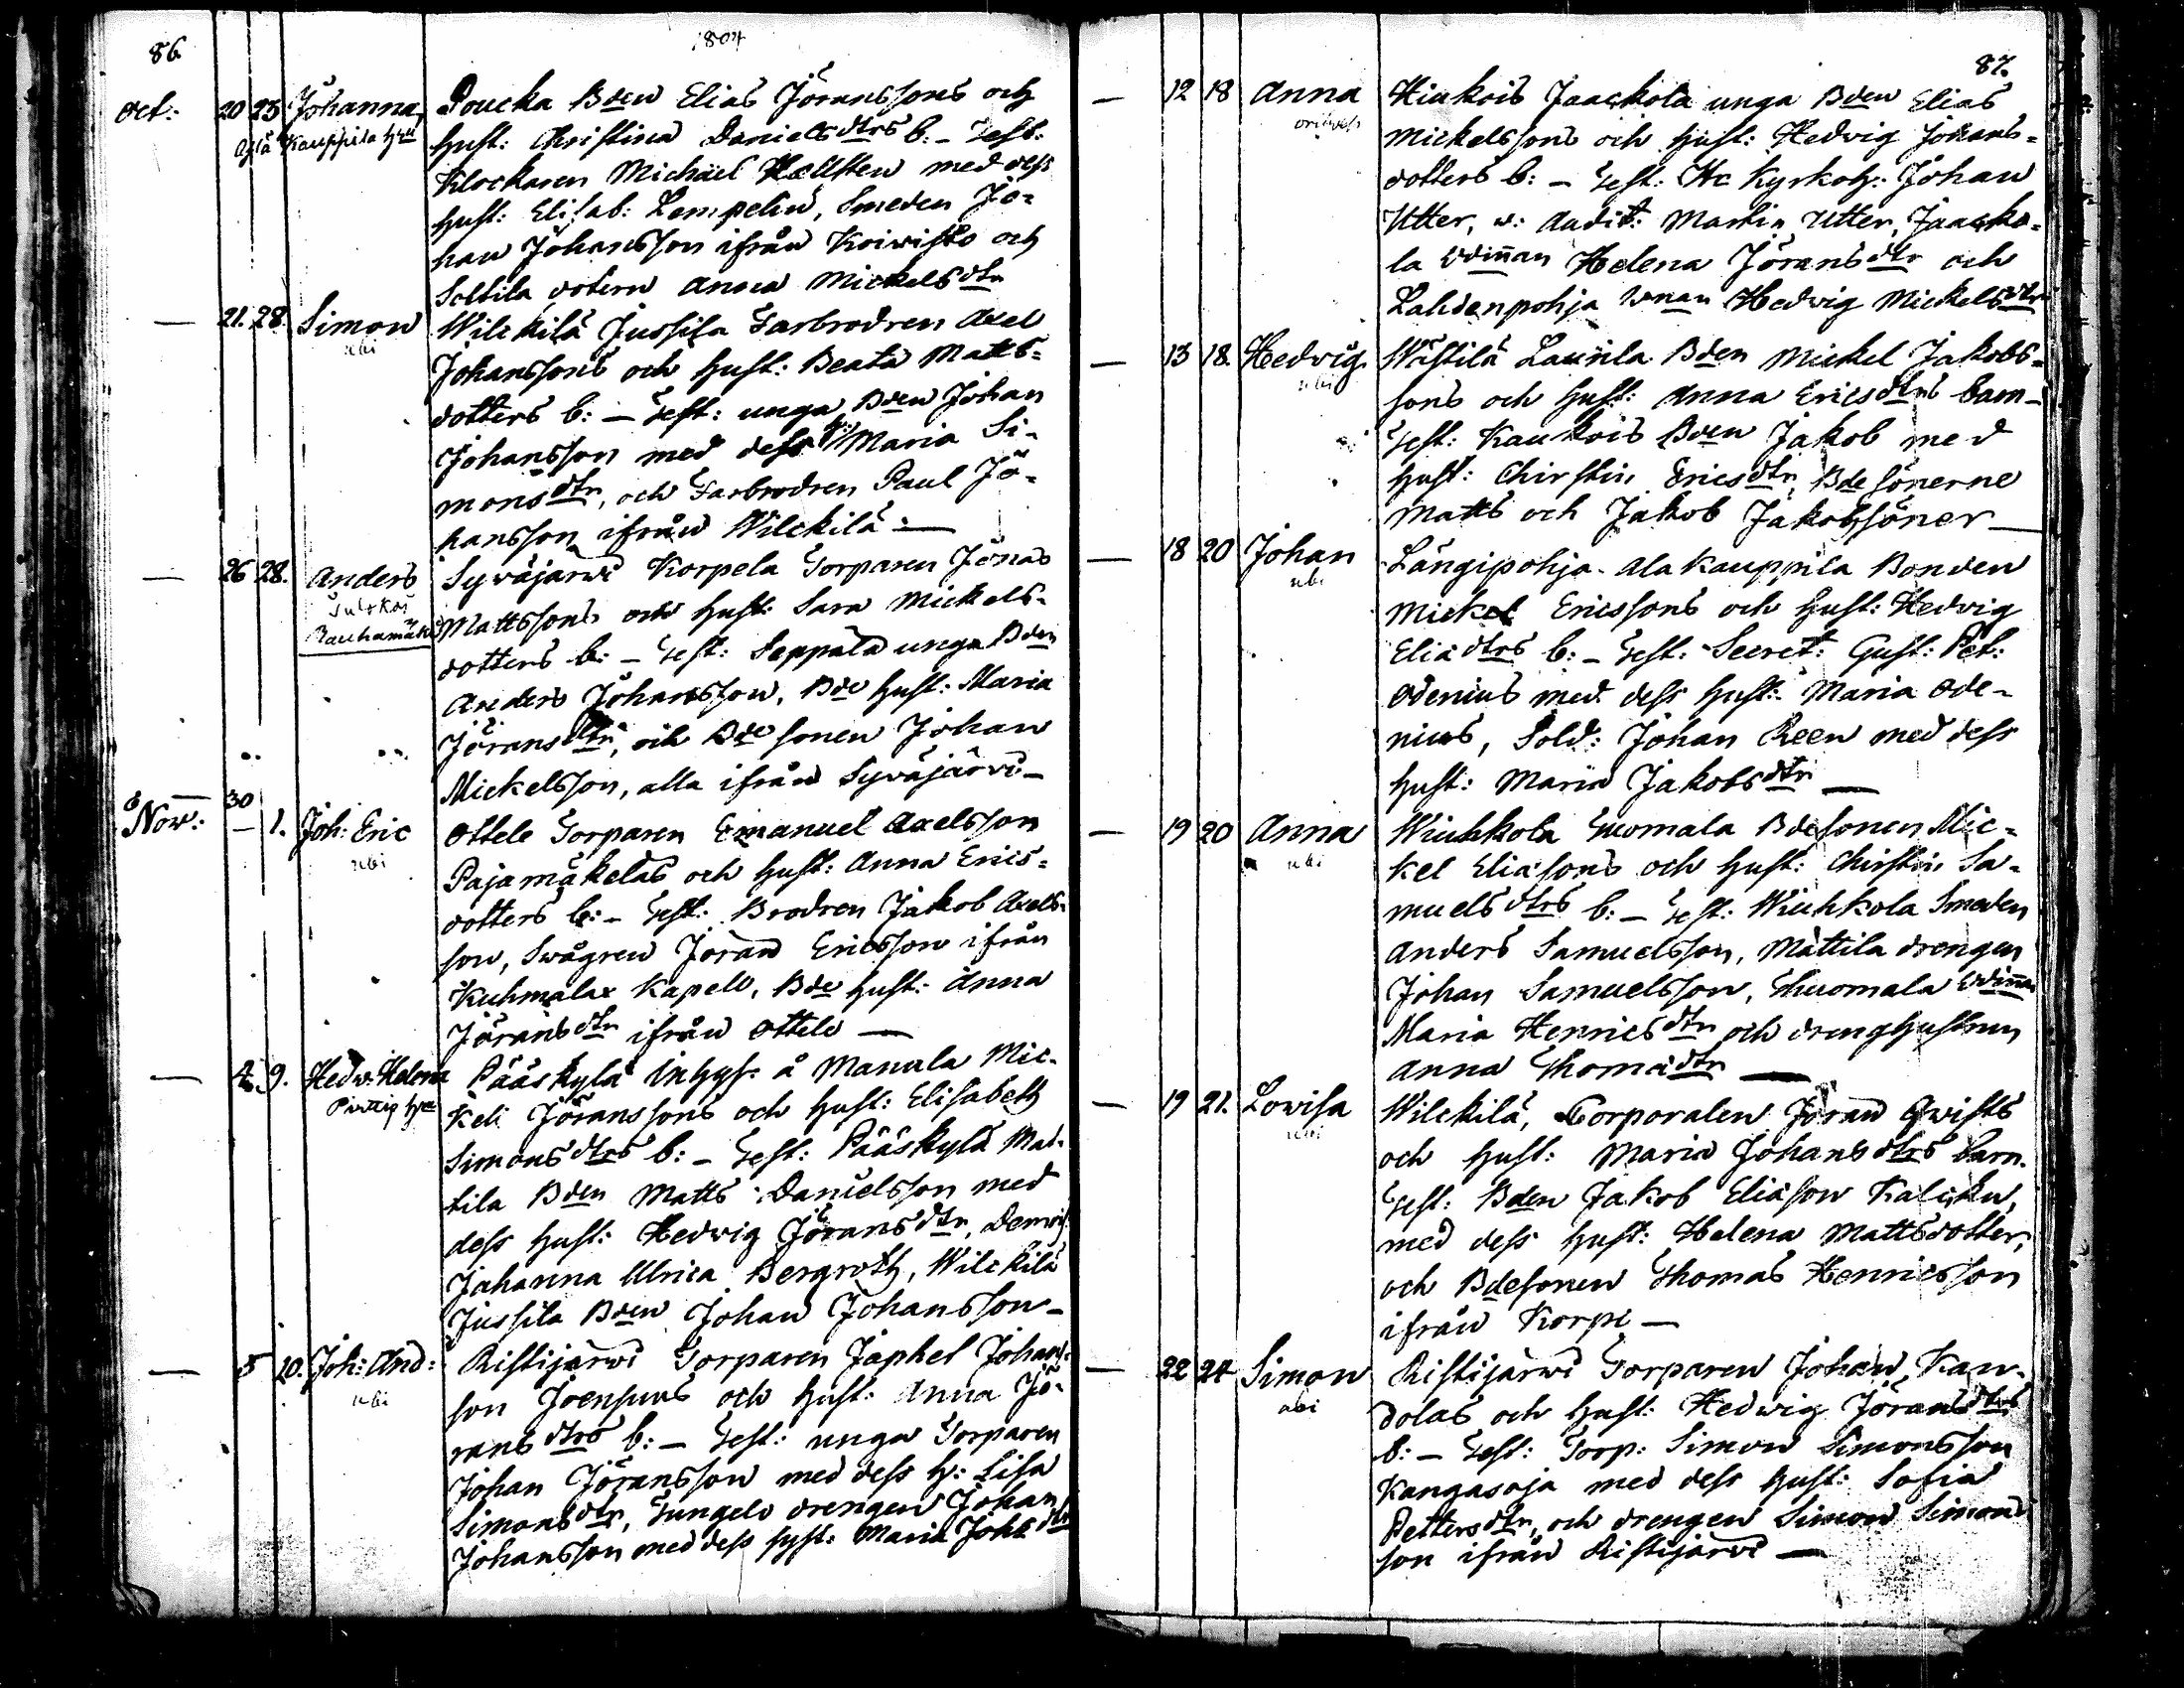 86.
1804
Oct: 20 23 Johanna, Poucka Bden Elias Jöranssons och
Kauppila hust: Christina Daniels dtrs b: - Test:
Klockaren Michäel Hællsten med dess
hust: Elisab: Lempelin, Smeden Jo-
han Johansson ifrån Koivisto och
Soltila dotern Anna Mickels dtr
— 21. 28. Simon Wilckilä Jussila Farbrodren Axel
ubi Johanssons och hust: Beata Matts-
dotters b: — Test: unga Bden Johan
Johansson med dess h: Maria Si-
mons dtr, och Farbrodren Paul Jo-
hansson ifrån Wilckilä —
— 26 28. Anders Syväjärwi Korpela Torparen Jonas
Rauhamäki Mattssons och hust: Sara Mickels-
dotters b: — Test: Seppälä unga Bden
Anders Johansson, Bde hust: Maria
Jörans dtr, och Bde sonen Johan
Mickelsson, alla ifrån Syväjärwi —
— 30
Nov: — 1. Joh: Eric Ottele Torparen Emanuel Axelsson
ubi Pajamäkeläs och hust: Anna Erics-
dotters b: — Test: Brodren Jakob Axels-
son, Swågren Jöran Ericsson ifrån
Kuhmalax Kapell, Bde hust: Anna
Jörans dtr ifrån Ottele —
— 4. 9. Hedw: Helena Pääskylä Inhys: å Manula Mic-
keli Jöranssons och hust: Elisabeth
Simons dtrs b: — Test: Pääskylä Mat-
tila Bden Matts Danielsson med
dess hust: Hedwig Jörans dtr, Demois:
Johanna Ulrica Bergroth, Wilckilä
Jussila Bden Johan Johansson —
— 5 10. Joh: And: Ristijärwi Torparen Japhet Johans-
ubi son Joensuus och hust: Anna Jö-
rans dtrs b: — Test: unga Torparen
Johan Jöransson med dess h: Lisa
Simons dtr, Tungelo drengen Johan
Johansson med dess hust: Maria Joh: dtr
87.
— 12 18 Anna Hiukois Jaackola unga Bden Elias
Mickelssons och hust: Hedvig Johans-
dotters b: — Test: Hc Kyrkoh: Johan
Utter, v: Audit: Martin Utter, Jaacko-
la Wdinnan Helena Jörans dtr och
Lahdenpohja Hedvig Mickels dtr
— 13 18. Hedvig. Wästilä Laurila Bden Mickel Jakobs-
ubi sons och hust: Anna Erics dtrs barn —
Test: Kaukois Bden Jakob med
hust: Chirstin Erics dtr, Bde sönerne
Matts och Jakob Jakobssöner —
— 18 20 Johan Längipohja Alakauppila Bonden
ubi Mickel Ericssons och hust: Hedvig
Eliä dtrs b: — Test: Secret: Gust: Pet:
Odenius med dess hust: Maria Ode-
nius, Sold: Johan Reen med dess
hust: Maria Jakobs dtr —
— 19 20 Anna Wiuhkola Thuomala Bdesonen Mic-
ubi kel Eliäsons och hust: Chirstin Sa-
muels dtrs b: — Test: Wiuhkola Smeden
Anders Samuelsson, Mattila drengen
Johan Samuelsson, Thuomala Wdinnan
Maria Henrics dtr och drenghustrun
Anna Thomä dtr —
— 19 21. Lovisa Wilckilä, Corporalen Jöran Qwists
ubi och hust: Maria Johans dtrs barn.
Test: Bden Jakob Eliäson Kaliku,
med dess hust: Helena Mattsdotter,
och Bdesonen Thomas Henricsson
ifrån Korpi —
— 22 24 Simon Ristijärwi Torparen Johan Kan-
ubi dolas och hust: Hedwig Jörans dtrs
b: — Test: Torp: Simon Simonsson
Kangasoja med dess hust: Sofia
Petters dtr, och drengen Simon Simons
son ifrån Ristijärwi —